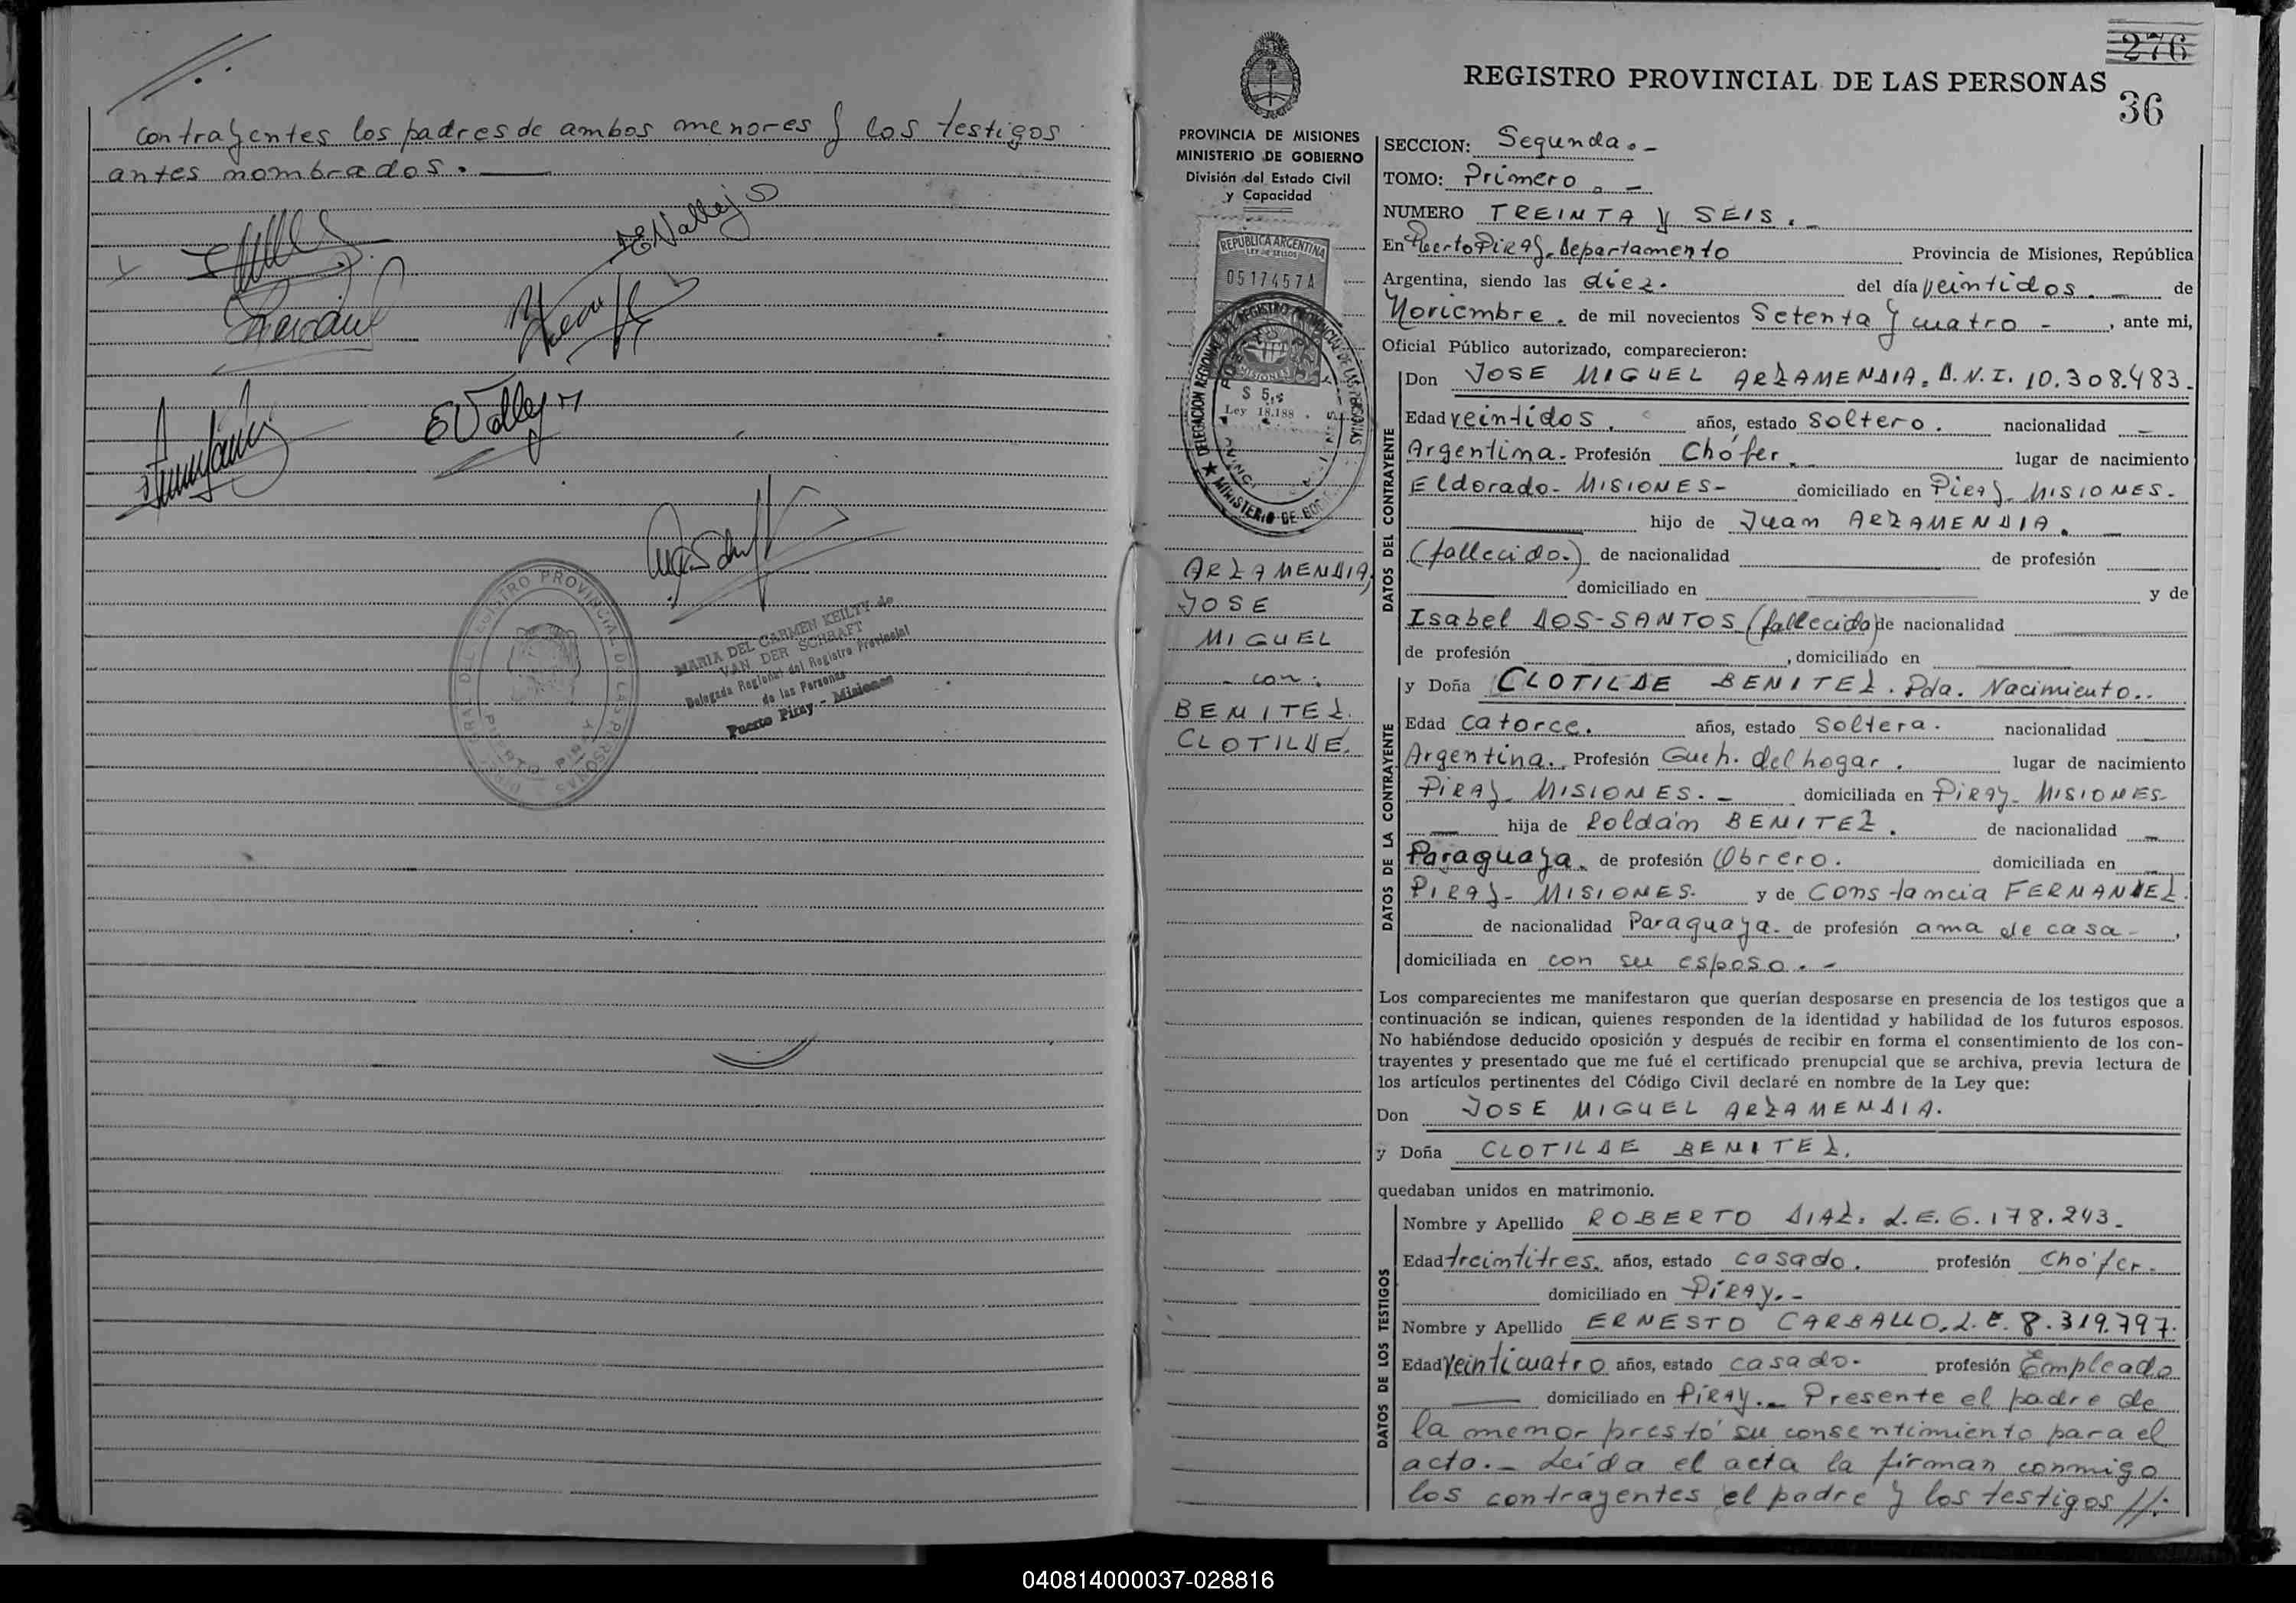 contrayentes los padres de ambos menores y los testigos
antes nombrados.
DEVallejos
EVallejos
MARIA DEL CARMEN KEILTY de
VAN DER SCHRAFT
Delegada Regional del Registro Provincial
de las Personas
Puerto Piray - Misiones
276
REGISTRO PROVINCIAL DE LAS PERSONAS
36
PROVINCIA DE MISIONES
MINISTERIO DE GOBIERNO
División del Estado Civil
y Capacidad
REPUBLICA ARGENTINA
LEY DE SELLOS
0517457A
MISIONES
$ 5,
Ley 18.188
ARZAMENDIA,
JOSE
MIGUEL
- con:
BENITEZ.
CLOTILDE.
SECCION: Segunda.-
TOMO: Primero.-
NUMERO TREINTA y SEIS.-
En Puerto Piray-Departamento Provincia de Misiones, República
Argentina, siendo las diez. del día veintidos.- de
Noviembre. de mil novecientos Setenta y cuatro - , ante mi,
Oficial Público autorizado, comparecieron:
DATOS DEL CONTRAYENTE
Don JOSE MIGUEL ARZAMENDIA. D.N.I. 10.308.483.
Edad veintidos. años, estado soltero. nacionalidad -
Argentina. Profesión Chófer. lugar de nacimiento
Eldorado- MISIONES- domiciliado en Piray- MISIONES.
hijo de Juan ARZAMENDIA.
(fallecido.) de nacionalidad de profesión
domiciliado en y de
Isabel DOS-SANTOS (fallecida) de nacionalidad
de profesión , domiciliado en
DATOS DE LA CONTRAYENTE
y Doña CLOTILDE BENITEZ. Pda. Nacimiento..
Edad catorce. años, estado soltera. nacionalidad
Argentina. Profesión Queh. del hogar. lugar de nacimiento
PIRAY- MISIONES.- domiciliada en PIRAY- MISIONES-
hija de Roldán BENITEZ. de nacionalidad -
Paraguaya. de profesión Obrero. domiciliada en
PIRAY- MISIONES. y de Constancia FERNANDEZ.
de nacionalidad Paraguaya. de profesión ama de casa- ,
domiciliada en con su esposo.-
Los comparecientes me manifestaron que querían desposarse en presencia de los testigos que a
continuación se indican, quienes responden de la identidad y habilidad de los futuros esposos.
No habiéndose deducido oposición y después de recibir en forma el consentimiento de los con-
trayentes y presentado que me fué el certificado prenupcial que se archiva, previa lectura de
los artículos pertinentes del Código Civil declaré en nombre de la Ley que:
Don JOSE MIGUEL ARZAMENDIA.
y Doña CLOTILDE BENITEZ.
quedaban unidos en matrimonio.
DATOS DE LOS TESTIGOS
Nombre y Apellido ROBERTO DIAZ. L.E. 6.178.243.
Edad treintitres. años, estado casado. profesión Chófer.
domiciliado en PIRAY.-
Nombre y Apellido ERNESTO CARBALLO. L.E. 8.319.797.
Edad Veinticuatro años, estado casado- profesión Empleado
domiciliado en PIRAY.- Presente el padre de
la menor prestó su consentimiento para el
acto.- Leída el acta la firman conmigo
los contrayentes el padre y los testigos //.
040814000037-028816